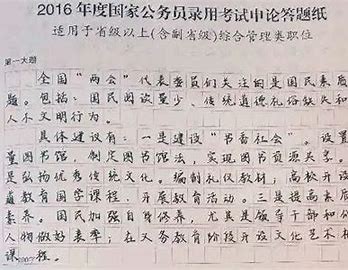 2016年度国家公务员录用考试申论答题纸
适用于省级以上(含副省级)综合管理类职位
第一大题
全国“两会”代表委员们关注的是国民素质
题。包括：国民阅读量少、传统道德礼俗缺失和
人不文明行为。
具体建议有：一是建设“书香社会”。设置
量图书馆，制定图书馆法，实现图书资源共享。
是弘扬优秀传统文化。编制礼仪教材，高校开设
遍教育国学课程，开展教育活动。三是提高素质
素养。国民加强自身修养，尤其是领导干部和公
人物做好表率；在义务教育阶段开设文化艺术相
课程。